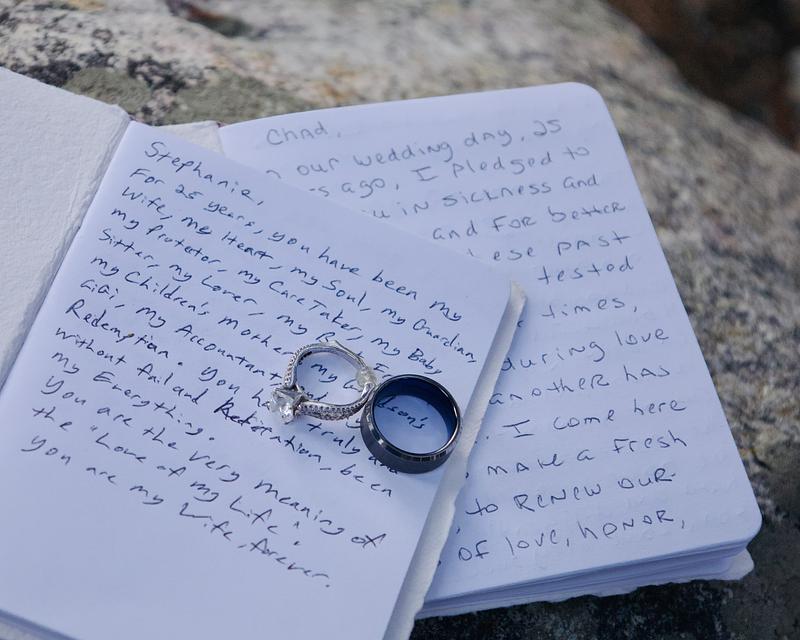 Stephanie,
For 25 years, you have been my
Wife, my Heart, my Soul, my Guardian,
my Protator, my Care Taker, my Baby
Sitter, my Lover, my
my Children's Mother, my
GiGi, my Accountant, my
Redemption. You truly and
without fail and Restoration, been
my Everything.
You are the very meaning of
the "Love of my Life".
you are my Wife, forever.
Chad,
our wedding day, 25
ago, I pledged to
in sickness and
and for better
past
tested
times,
during love
another has
. I come here
make a fresh
to renew our
of love, honor,